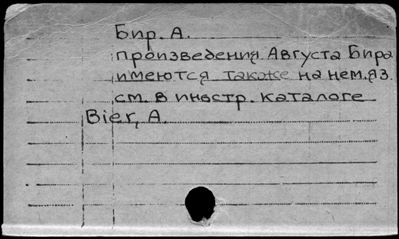 Бир. А.
произведения Августа Бира
имеются также на нем.яз.
см. в иностр. каталоге
Bier, A.